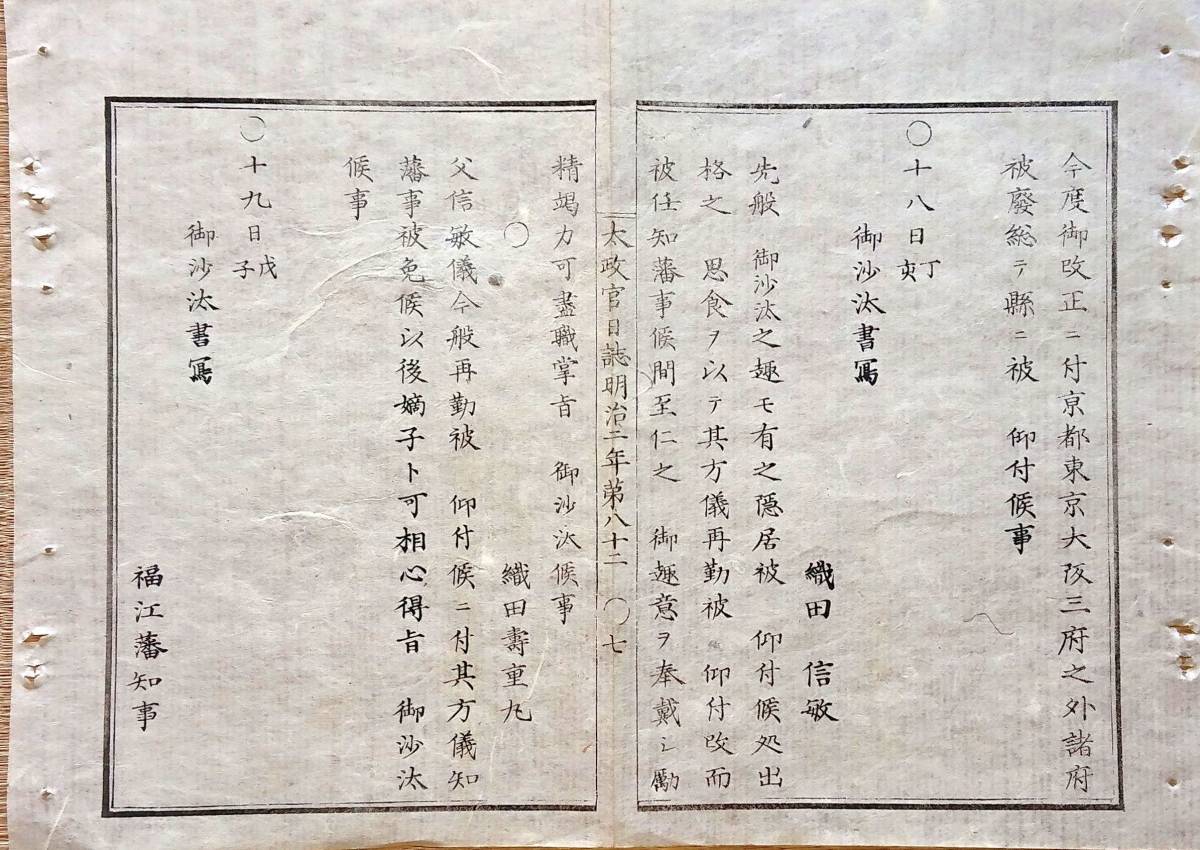 今度御改正ニ付京都東京大阪三府之外諸府
被廢総テ縣ニ被　仰付候事
〇十八日丁亥
御沙汰書寫
織田　信敏
先般　御沙汰之趣モ有之隠居被　仰付候処出
格之　思食ヲ以テ其方儀再勤被　仰付改而
被任知藩事候間至仁之　御趣意ヲ奉戴シ勵
太政官日誌明治二年第八十二　〇七
精竭力可盡職掌旨　御沙汰候事
〇
織田壽重丸
父信敏儀今般再勤被　仰付候ニ付其方儀知
藩事被免候以後嫡子ト可相心得旨　御沙汰
候事
〇十九日戊子
御沙汰書寫
福江藩知事